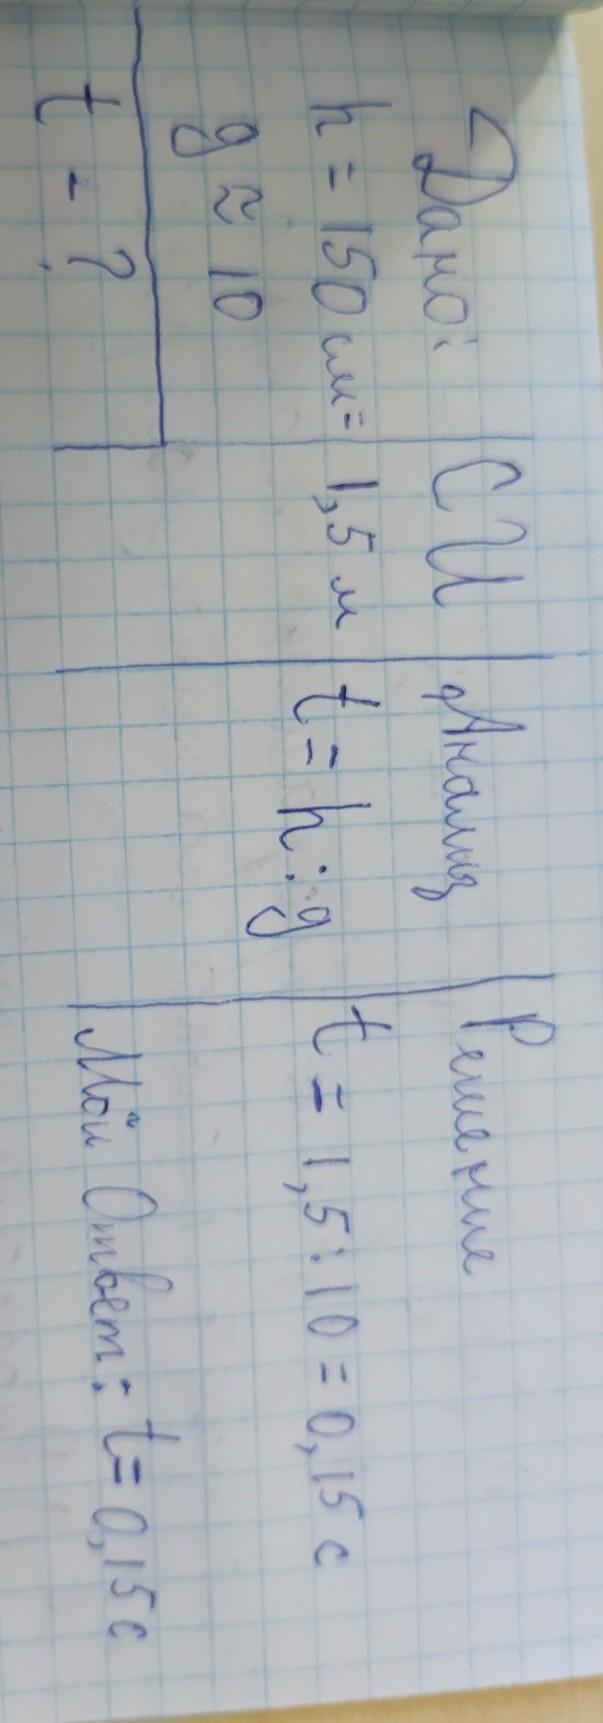 Дано:
h = 150 см=
g ≈ 10
t - ?
СИ
1,5 м
Анализ
t = h : g
Решение
t = 1,5 : 10 = 0,15 с
Мой Ответ: t = 0,15 с